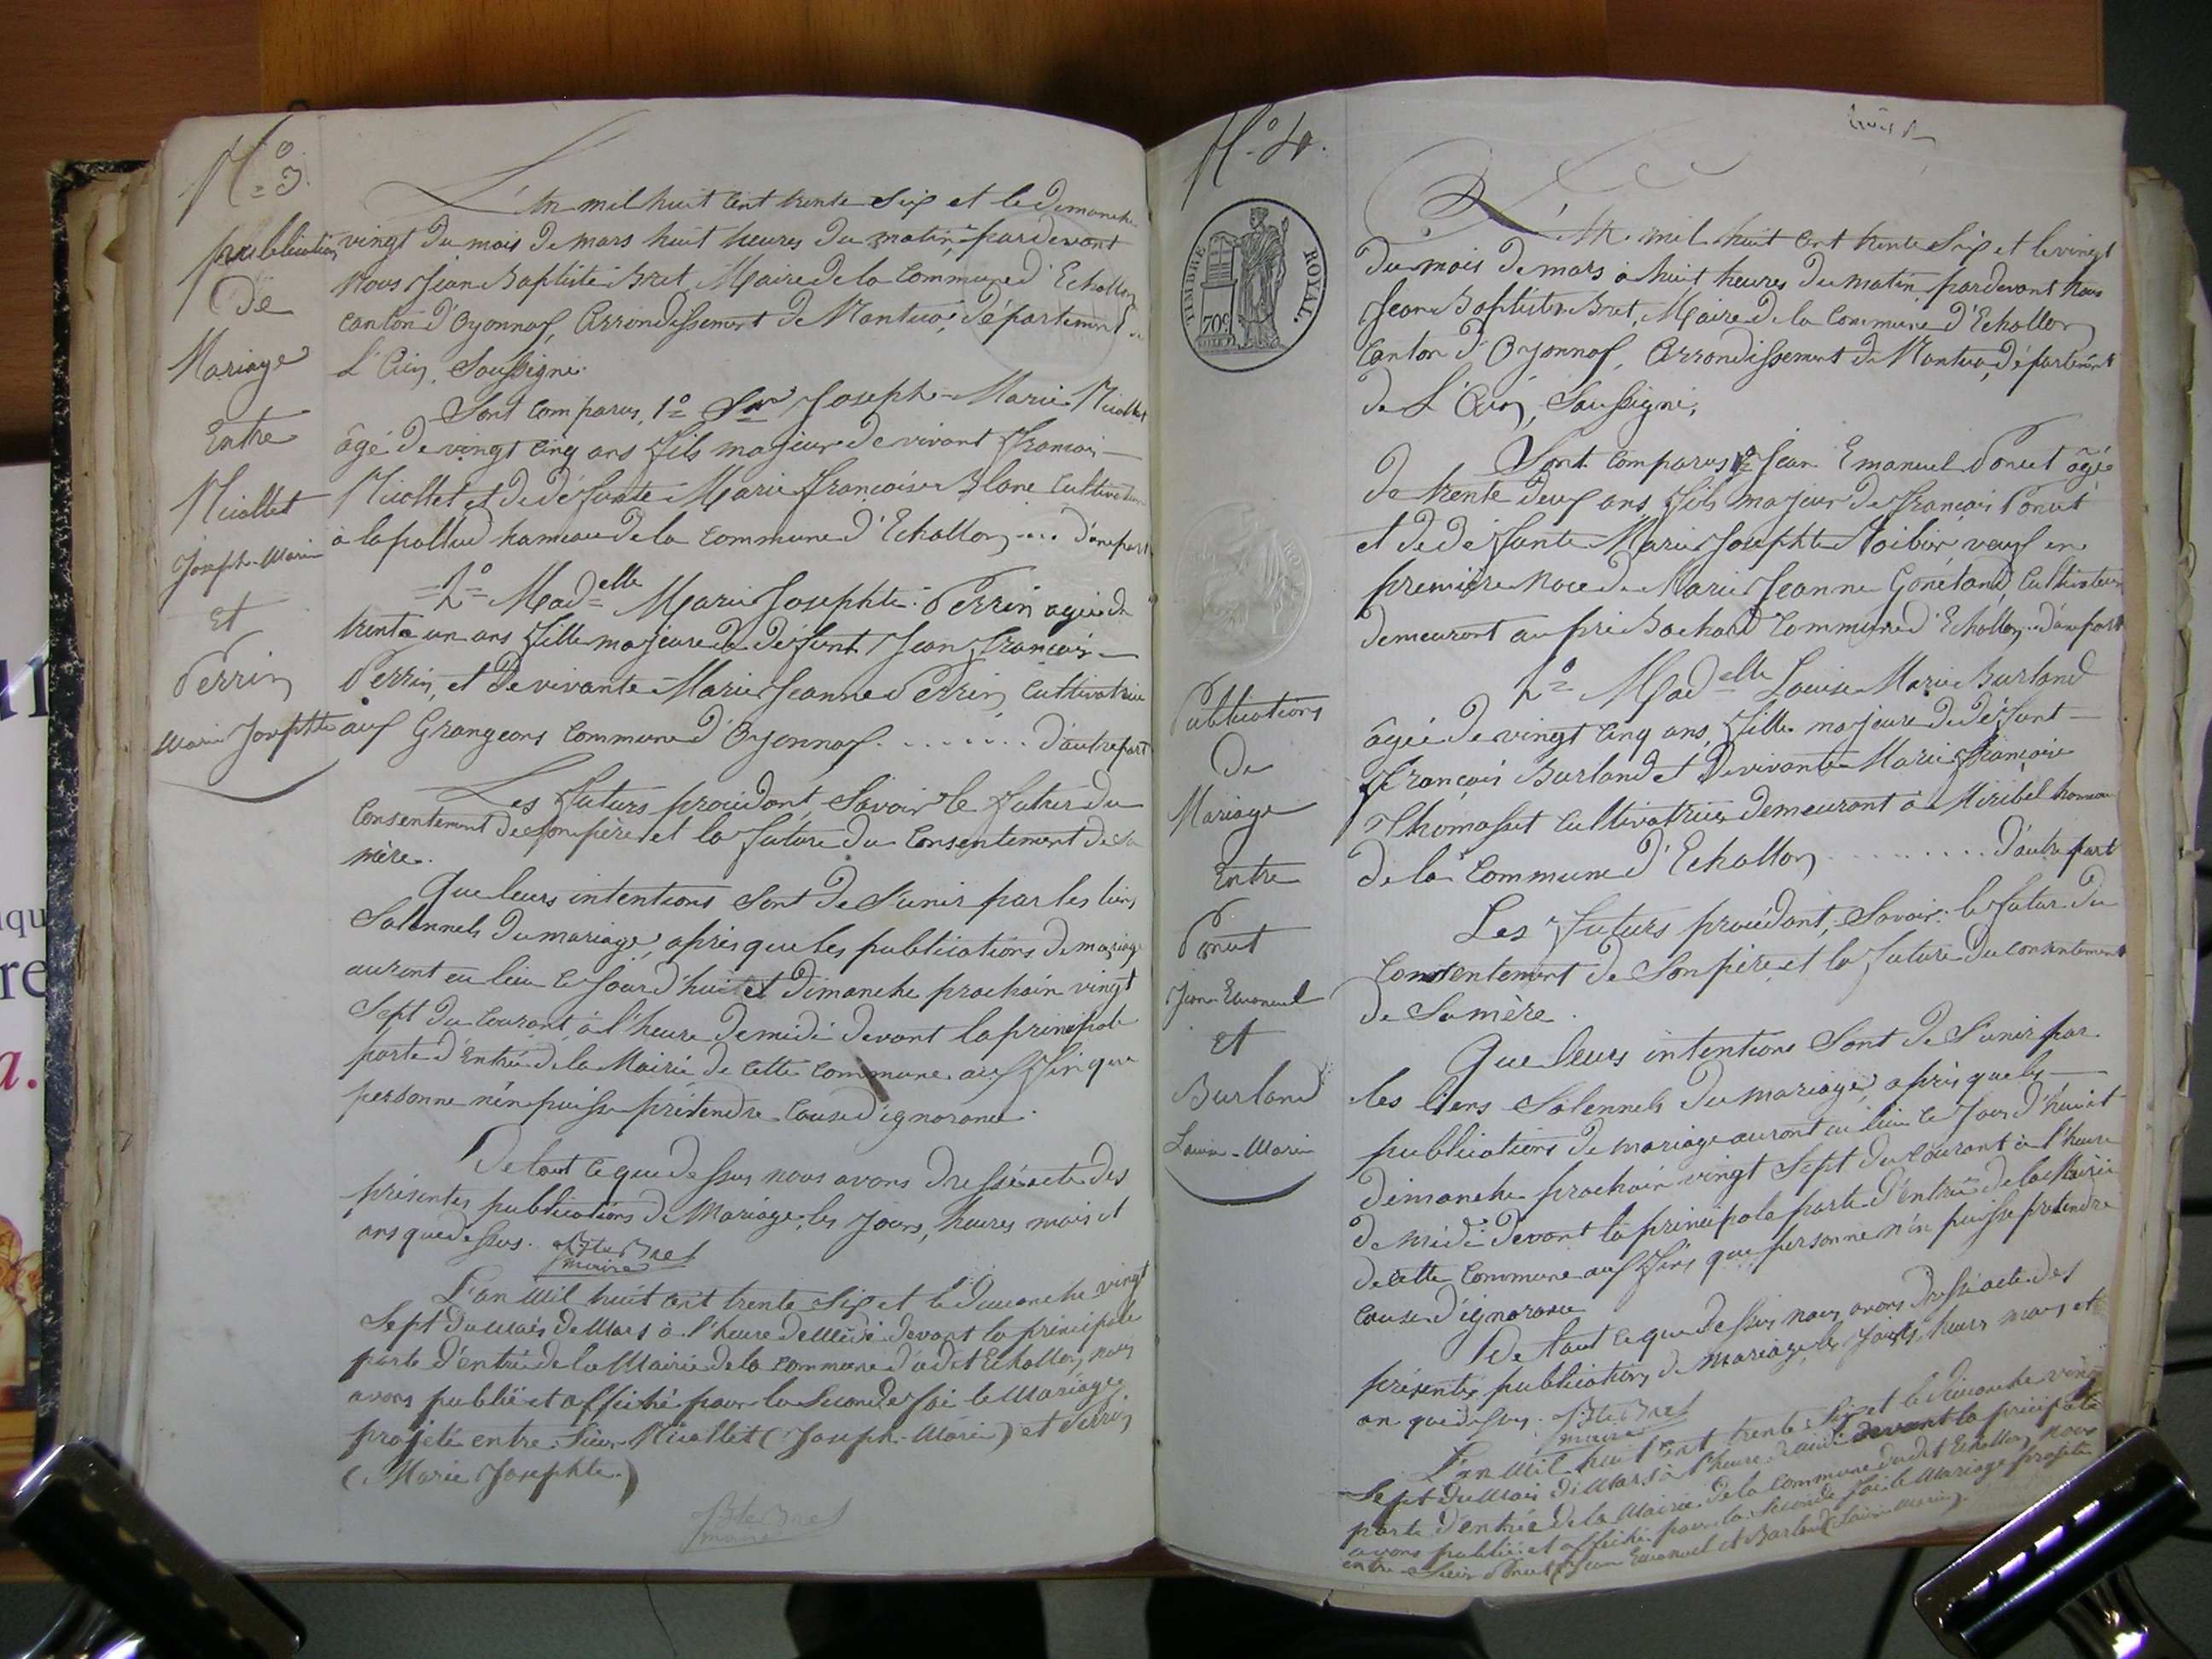 N° 3.
publication
de
Mariage
Entre
Nicollet
Joseph-Marie
Et
Perrin
Marie Josephte
L'An mil huit cent trente Six et le dimanche
vingt du mois de mars huit heures du matin pardevant
Nous Jean Baptiste Bret, Maire de la Commune d'Echallon
Canton d'Oyonnax, Arrondissement de Nantua, département de
L'Ain, Soussigné.
Sont comparus, 1° Sr Joseph-Marie Nicollet
âgé de vingt cinq ans fils majeur de vivant François
Nicollet et de défunte Marie Françoise Blanc Cultivateur
à lapallud hameau de la Commune d'Echallon ... d'une part
2° Madelle Marie Josephte Perrin agée de
trente un ans fille majeure de défunt Jean François
Perrin, et de vivante Marie Jeanne Perrin, Cultivatrice
aux Grangeons Commune d'Oyonnax ....... d'autre part
Les futurs procédant, Savoir le futur du
Consentement de son père et la future du Consentement de sa
mère.
Que leurs intentions Sont de S'unir par les liens
Solennels du mariage, après que les publications de mariage
auront eu lieu ce jourd'hui et dimanche prochain vingt
Sept du Courant, à l'heure de midi devant la principale
porte d'Entrée de la Mairie de cette Commune aux fin que
personne n'en puisse prétendre Cause d'ignorance.
De tout ce que dessus nous avons dressé acte des
présentes publications de Mariage, les jours, heures mois et
ans que dessus. Bte Bret
maire
L'an Mil huit cent trente Six et le dimanche vingt
Sept du Mois de Mars à l'heure de Midi devant la principale
porte d'entrée de la Mairie de la Commune dudit Echallon, nous
avons publié et affiché pour la Seconde foi le Mariage
projeté entre Sieur Nicollet (Joseph-Marie) et Perrin
(Marie Josephte.)
Bte Bret
maire
N° 4.
TIMBRE ROYAL.
70c
Publications
de
Mariage
Entre
Ponut
Jean Emanuel
et
Burland
Louise-Marie
L'An mil huit cent trente Six et le vingt
du mois de mars à huit heures du matin pardevant nous
Jean Baptiste Bret, Maire de la Commune d'Echallon
Canton d'Oyonnax, Arrondissement de Nantua, département
de L'Ain, Soussigné,
Sont Comparus 1° Jean Emanuel Ponut âgé
de trente deux ans, fils majeur de François Ponut
et de défunte Marie Josephte veuf en
première Noce de Marie Jeanne Gonétand, Cultivateur
demeurant au pré Bachard Commune d'Echallon, d'une part
2° Madelle Louise Marie Burland
âgée de vingt cinq ans, fille majeure de défunt
François Burland et de vivante Marie Françoise
Thomasset Cultivatrice, demeurant à Miribel hameau
de la Commune d'Echallon ......... d'autre part
Les futurs procédant, Savoir: le futur du
Consentement de Son père et la future du Consentement
de Sa mère.
Que leurs intentions Sont de S'unir par
les liens Solennels du mariage, après que les
publications de mariage auront eu lieu ce jour d'hui et
dimanche prochain vingt Sept du Courant à l'heure
de midi devant la principale porte d'entrée de la Mairie
de cette Commune aux fins que personne n'en puisse prétendre
Cause d'ignorance
De tout ce que dessus nous avons dressé acte des
présentes publications de Mariage les jours, heures mois, et
an que dessus. Bte Bret
maire
L'an Mil huit cent trente Six et le dimanche vingt
Sept du Mois de Mars à l'heure midi devant la principale
porte d'entrée de la Mairie de la Commune dudit Echallon, nous
avons publié et affiché pour la Seconde foi le Mariage projeté
entre Sieur Ponut (Jean Emanuel et Burland (Louise Marie).